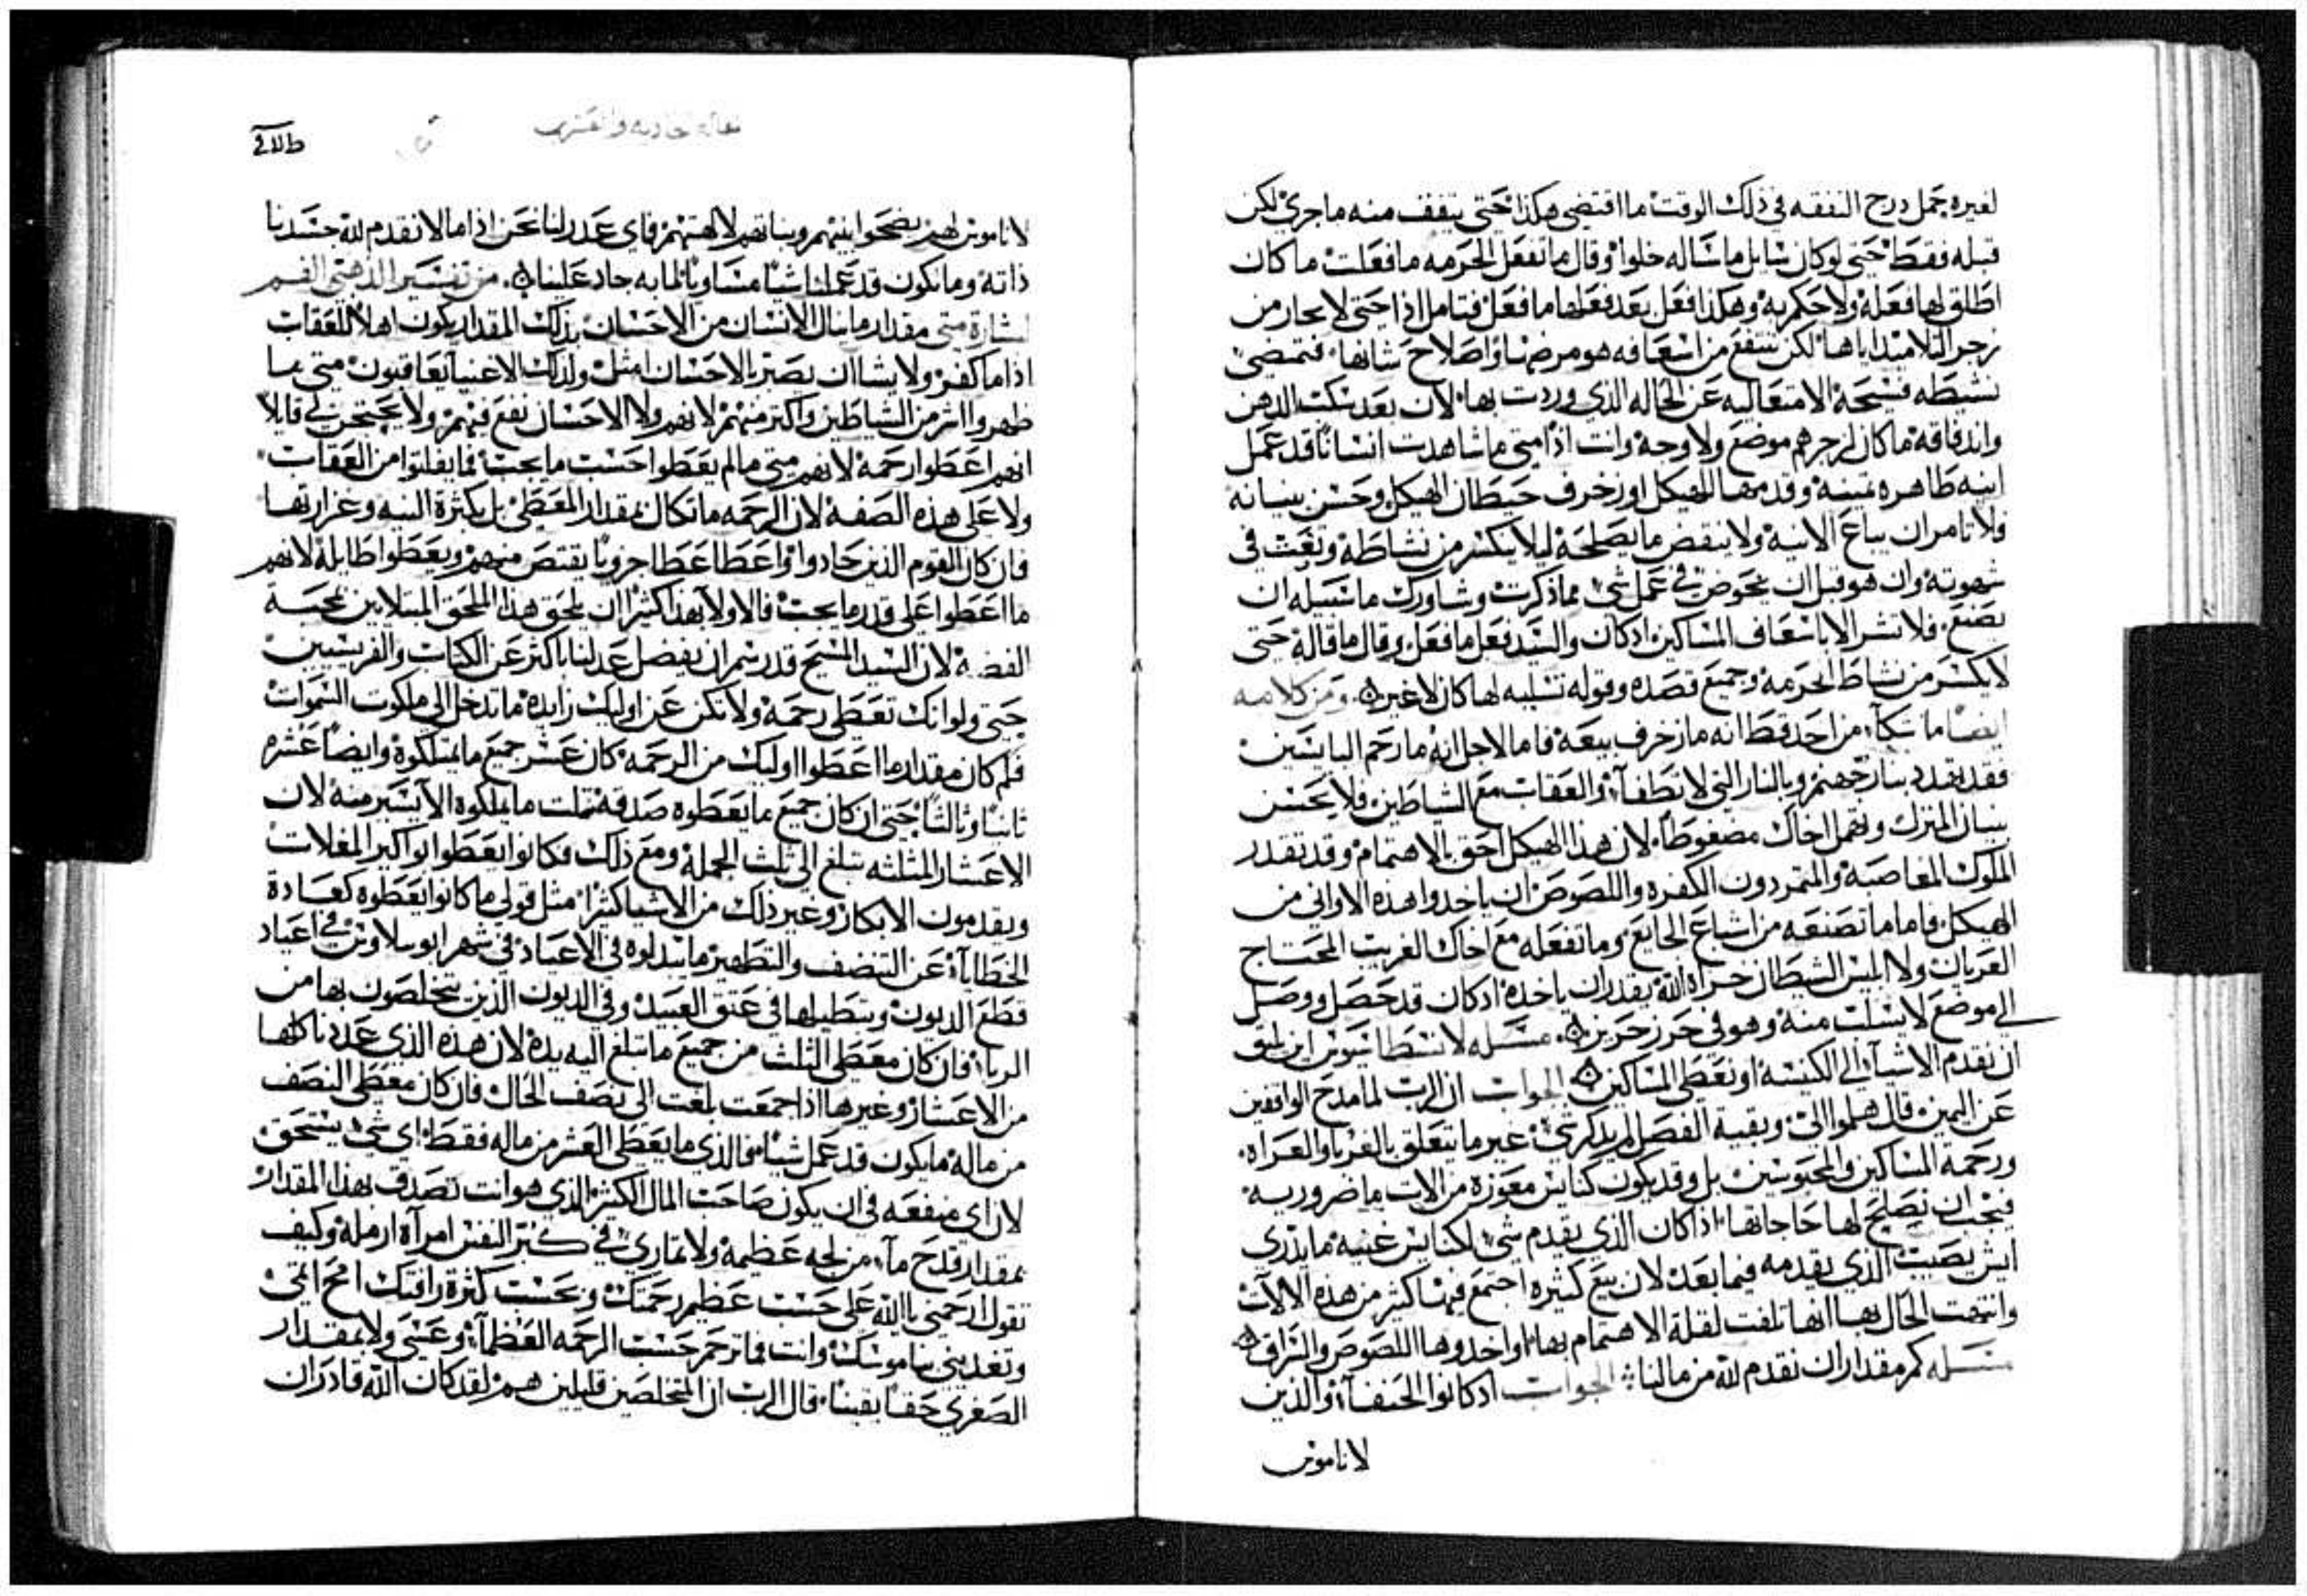 لغيره جمل درج النفقه في ذلك الوقت ما اقتضي هكذا حتي يتفف منه ما جري لكن
قبله فقط حتي لو كان سايل ما ساله خلوا وقال ما تفعل الحرمه ما فعلت ما كان
اطلق لها فعله ولا حكم به وهكذا فعل بعد فعلها ما فعل فتامل اذا حتي لا تحار من
زجر التلاميذ اياها لكن تنتفع من اسعافه هو مرضها واصلاح شانها فتمضي
نشيطه فسحه الامتعاليه عن الحاله الذي وردت بها لان بعد سكب الدهن
واندفاقه ما كان لزجرهم موضع ولا وجه وانت اذا متي ما شاهدت انسانا قد عمل
انيه طاهره ثمينه وقدمها للهيكل او زخرف حيطان الهيكل وحسن بنيانه
فلا تامر ان يباع الانيه ولا ينقض ما يصلحه ليلا يكسر من نشاطه وتغث في
شهوته وان هو قبل ان يخوض في عمل شي مما ذكرت وشاورك ما سبيله ان
يصنع فلا تشر الا باسعاف المساكين اد كان والسيد فعل ما فعل وقال ما قاله حتي
لا يكسر من نشاط الحرمه وجميع قصده وقوله تسليه لها كان لا غير ومن كلامه
ايضا ما شكا من احد قط انه ما زخرف بيعه فاما لاجل انه ما رحم البايسين
فقد تهدد بنار جهنم وبالنار التي لا تطفا والعقاب مع الشياطين فلا يحسن
بنيان المنزل وتهمل اخاك مضغوطا لان هذا الهيكل احق بالاهتمام وقد تقدر
الملوك المغاصبه والمتمردون الكفره واللصوص ان ياخدوا هذه الاواني من
الهيكل فاما ما تصنعه من اشباع الجايع وما تفعله مع اخاك الغريب المحتاج
العريان ولا ابليس الشيطان خزاه الله يقدر ان ياخده ادكان قد حصل ووصل
الي موضع لا يسلب منه وهو في حرز حريز مسله لانسطاسيوس اين يليق
ان نقدم الاشيا الي الكنيسه او نعطي المساكين الجواب ان الرب لما مدح الواقفين
عن اليمين قال هلموا الي وبقية الفصل لم يذكر شي غير ما يتعلق بالغربا والعراه
ورحمة المساكين والمحبوسين بل وقد يكون كنايس معوزه من الات ما ضروريه
فيجب ان نصلح لها حاجاتها اذا كان الذي يقدم شي لكنايس غنيه ما يدري
ايش يصيب الذي يقدمه فيما بعد لان بيع كثيره اجتمع فيها كثير من هذه الالات
وانتهت الحال بها انها تلفت لقلة الاهتمام بها او اخدوها اللصوص والسراق
مسله كم مقدار ان نقدم لله من مالنا الجواب ادكانوا الحنفا والذين
لا ناموس
طلاق
لا ناموس لهم يضحوا بنيهم وبناتهم لالهتهم فاي عدر لنا نحن اذا ما لا نقدم لله جسدنا
ذاته وما نكون قد عملنا شيا مساويا لما به جاد علينا من تفسير الذهبي الفم
بشارة متي مقدار ما ينال الانسان من الاحسان بذلك المقدار يكون اهلا للعقاب
اذا ما كفر ولا يشا ان يصير بالاحسان امثل ولذلك الاغنيا يعاقبون متي ما
ظهروا اشر من الشياطين واكثر منهم لانهم ولا الاحسان نفع فيهم ولا يحتجن لي قايلا
انهم اعطوا رحمه لانهم متي ما لم يعطوا حسب ما يجب فما يفلتوا من العقاب
ولا علي هذه الصفه لان الرحمه ما تكال بمقدار المعطي بل بكثرة النيه وغزارتها
فان كان القوم الذين جادوا او اعطا عطا جزويا يقتص منهم ويعطوا طايلة لانهم
ما اعطوا علي قدر ما يجب فالاولا بهذا كثيرا ان يلحق هذا الملحق المبتلايين بمحبة
الفضه لان السيد المسيح قد رسم ان يفضل عدلنا باكثر عن الكتاب والفريسيين
حتي ولو انك تعطي رحمه ولا تكن عن اوليك زايده ما تدخل الي ملكوت السموات
فلم كان مقدار ما اعطوا اوليك من الرحمه كان عشر جميع ما يمتلكوه وايضا عشره
ثانيا وثالثا حتي ان كان جميع ما يعطوه صدقه ثلت ما يملكوه الا يسير منه لان
الاعشار المثلثه تبلغ الي ثلث الجمله ومع ذلك فكانوا يعطوا بواكير المغلات
ويقدمون الابكار وغير ذلك من الاشيا كثيرا مثل قولي ما كانوا يعطوه كعادة
الخطايا عن التنضف والتطهير ما يبدلوه في الاعياد في شهر ابوسلاوس في اعياد
قطع الديون وتبطيلها في عتق العبيد وفي الديون الذين يتخلصون بها من
الربا فان كان معطي الثلث من جميع ما تبلغ اليه يده لان هذه الذي عددناكلها
من الاعشار وغيرها اذا جمعت بلغت الي نصف الحال فان كان معطي النصف
من ماله ما يكون قد عمل شيا فالذي ما يعطي العشر من ماله فقط اي شي يستحق
لان اي منفعه في ان يكون صاحب المال الكثير الذي هو انت تصدق بهذا المقدار
بمقدار قدح ما من لجه عظيمه ولا تماري في كبر النفس امراة ارمله وكيف
تقول ارحمني يا الله علي حسب عظيم رحمتك وبحسب كثرة رافتك امح اثمي
وتغديني بناموسك وانت فما ترحم حسب الرحمه العظما وعسي ولا بمقدار
الصغري حقا يقينا قال الرب ان المتخلصين قليلين هم لقد كان الله قادر ان